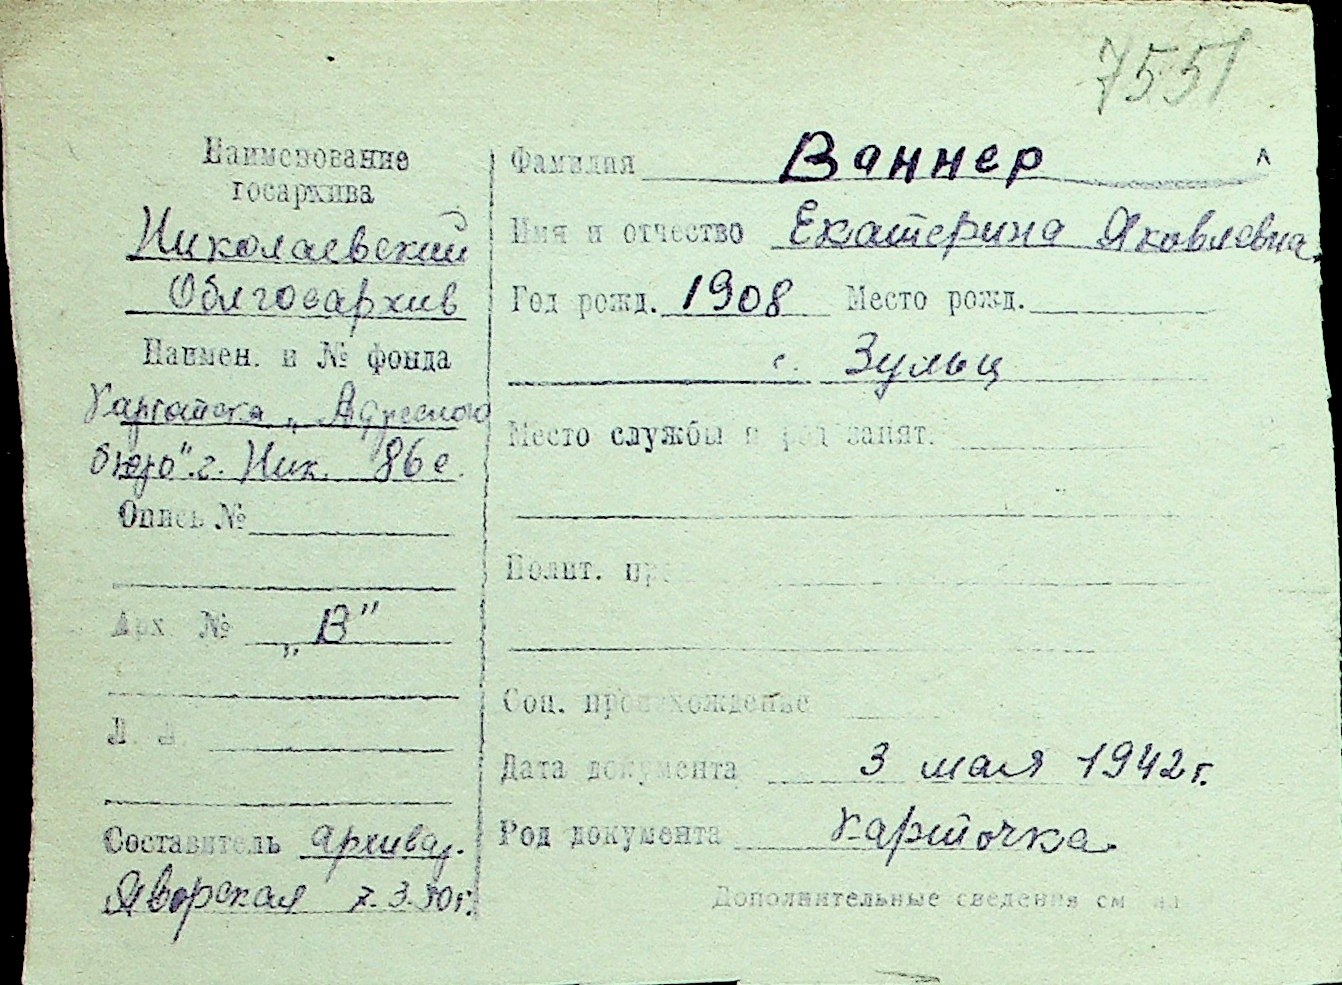 7551
Наименование
госархива
Николаевский
Облгосархив
Наимен. и № фонда
Картотека „Адресного
бюро". г. Ник. 86 е.
Опись №
Арх. № „В"
Л. Л.
Составитель архивар.
Яворская 7.3.50г.
Фамилия Ваннер
Имя и отчество Екатерина Яковлевна
Год рожд. 1908 Место рожд.
с. Зульц
Место службы и род занят.
Полит.
Соц. происхождение
Дата документа 3 мая 1942 г.
Род документа карточка.
Дополнительные сведения см